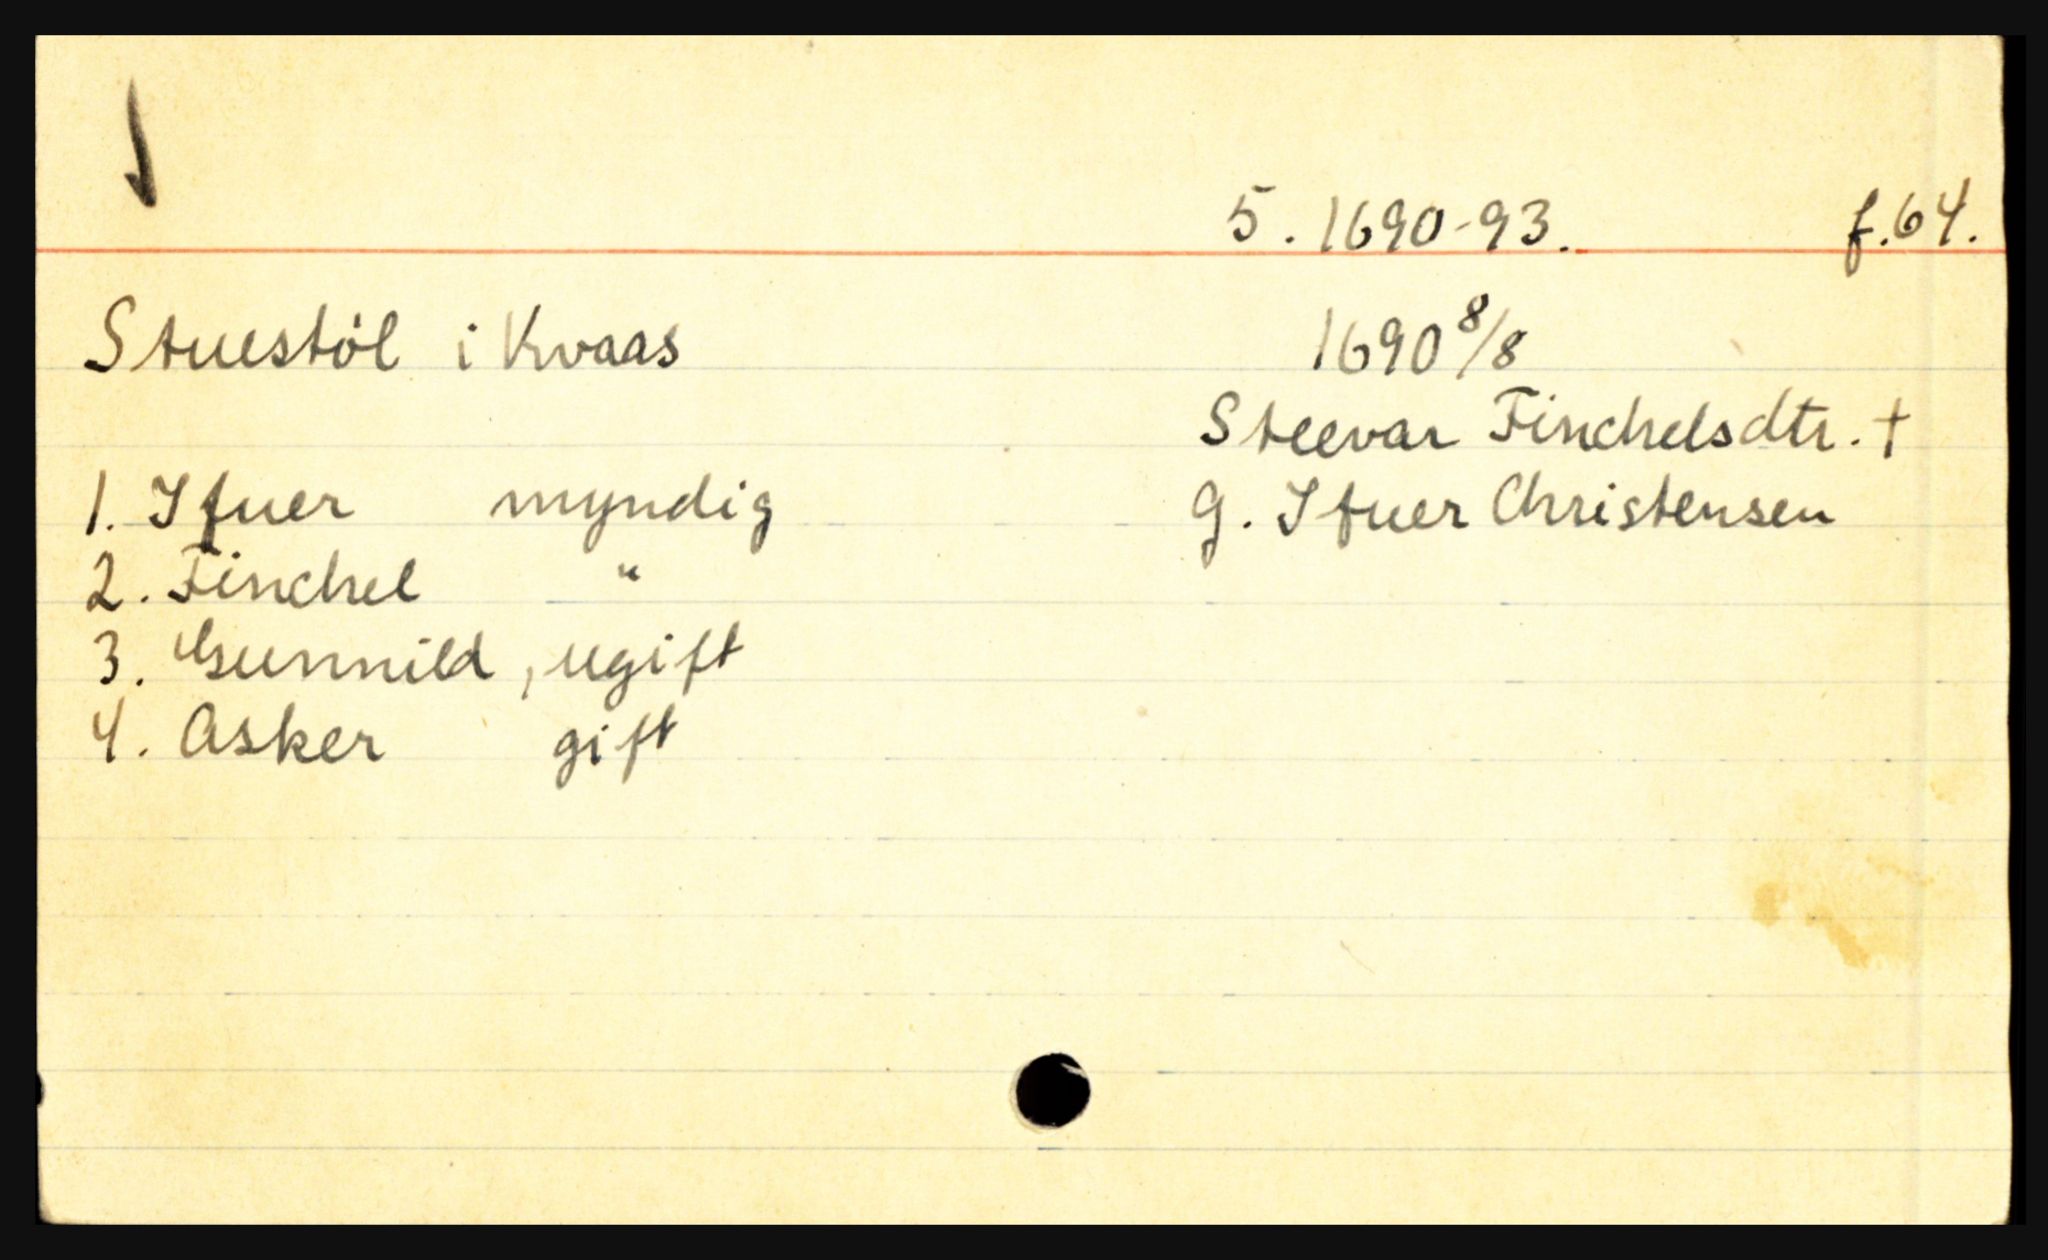 5. 1690-93. f. 64.
Stuestøl i Kvaas 1690 8/8
Steevar Finchelsdtr. †
1. Ifuer myndig g. Ifuer Christensen
2. Finchel "
3. Gunnild, ugift
4. Asker gift